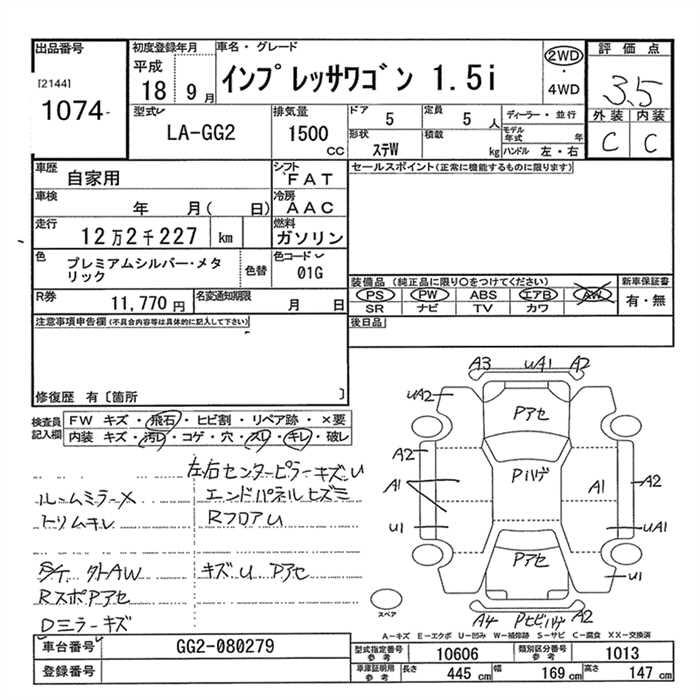 出品番号
[2144]
1074-
初度登録年月
平成
18 9月
車名・グレード
インプレッサワゴン 1.5i
2WD
・
4WD
評価点
3.5
外装 内装
C C
型式
LA-GG2
排気量
1500
CC
ドア
5
定員
5 人
ディーラー・並行
形状
ステW
積載
kg
モデル年式 年
ハンドル 左・右
車歴
自家用
シフト
FAT
車検
年 月( 日)
冷房
AAC
走行
12万2千227 km
燃料
ガソリン
色
プレミアムシルバー・メタ
リック
色替
色コード
01G
R券
11,770 円
名変通知期限
月 日
セールスポイント(正常に機能するものに限ります)
装備品 (純正品に限り○をつけてください)
PS PW ABS エアB AW
SR ナビ TV カワ
新車保証書
有・無
後日品
注意事項申告欄(不具合内容等は具体的に記入して下さい)
修復歴 有〔箇所 〕
検査員
記入欄
FW キズ・飛石・ヒビ割・リペア跡・×要
内装 キズ・汚レ・コゲ・穴・スレ・キレ・破レ
左右センターピラーキズU
ルームミラー× エンドパネルヒズミ
トリムキレ RフロアU
外AW キズU Pアセ
RスポPアセ
Dミラーキズ
A3 UA1 A2
UA2
Pアセ
A2
Pハゲ
A2
A1
A1
U1
UA1
Pアセ
U1
スペア
A4 Pヒビハゲ A2
A-キズ E-エクボ U-凹み W-補修跡 S-サビ C-腐食 XX-交換済
車台番号
GG2-080279
登録番号
型式指定番号
参考
10606
類別区分番号
参考
1013
車庫証明用
参考
長さ
445 cm
幅
169 cm
高さ
147 cm